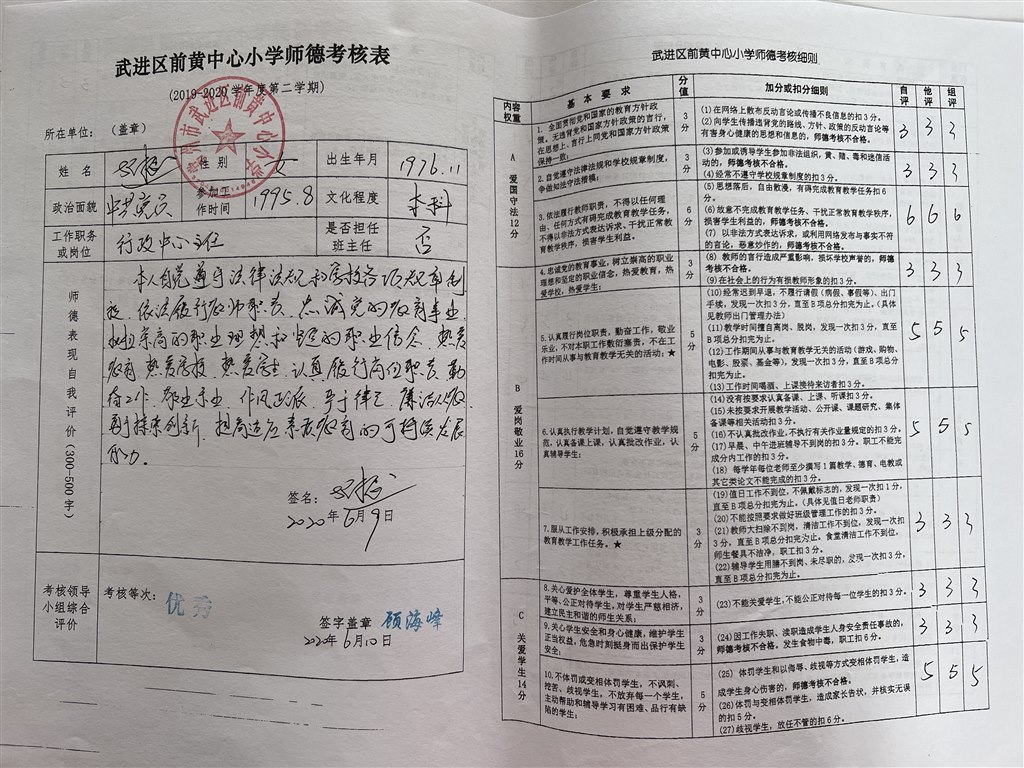 武进区前黄中心小学师德考核表
(2019-2020学年度第二学期)
所在单位： (盖章)
姓 名 性 别 女 出生年月 1976.11
政治面貌 中共党员 参加工作时间 1995.8 文化程度 本科
工作职务或岗位 行政中心主任 是否担任班主任 否
师德表现自我评价(300-500字)
本人自觉遵守法律法规和学校各项规章制
度，依法履行教师职责，忠诚党的教育事业，
树立崇高的职业理想和坚定的职业信念，热爱
教育，热爱学校，热爱学生，认真履行岗位职责，勤
奋工作，敬业乐业，作风正派，严于律己，廉洁从教，
勇于探索创新，
素质教育的可持续发展
能力。
签名：
2020年6月9日
考核领导小组综合评价
考核等次： 优秀
签字盖章 顾海峰
2020年6月10日
武进区前黄中心小学师德考核细则
内容权重 基 本 要 求 分值 加分或扣分细则 自评 他评 组评
A 爱国守法12分
1. 全面贯彻党和国家的教育方针政策，无违背党和国家方针政策的言行，在思想上、言行上同党和国家方针政策保持一致； 3分
(1)在网络上散布反动言论或传播不良信息的扣3分。
(2)向学生传播违背党的路线、方针、政策的反动言论等有害身心健康的思想和信息的，师德考核不合格。
3 3 3
2.自觉遵守法律法规和学校规章制度，争做知法守法楷模； 3分
(3)参加或诱导学生参加非法组织，黄、赌、毒和迷信活动的，师德考核不合格。
(4)经常不遵守学校规章制度的扣3分。
3 3 3
3.依法履行教师职责，不得以任何理由、任何方式有碍完成教育教学任务，不得以非法方式表达诉求、干扰正常教育教学秩序，损害学生利益。 6分
(5)思想落后，自由散漫，有碍完成教育教学任务扣6分。
(6)故意不完成教育教学任务、干扰正常教育教学秩序，损害学生利益的，师德考核不合格。
(7) 以非法方式表达诉求，或利用网络发布与事实不符的言论，恶意炒作的，师德考核不合格。
6 6 6
B 爱岗敬业16分
4.忠诚党的教育事业，树立崇高的职业理想和坚定的职业信念，热爱教育，热爱学校，热爱学生； 3分
(8) 教师的言行造成严重影响，损坏学校声誉的，师德考核不合格。
(9)在社会上的行为有损教师形象的扣3分。
3 3 3
5.认真履行岗位职责，勤奋工作，敬业乐业，不对本职工作敷衍塞责，不在工作时间从事与教育教学无关的活动；★ 5分
(10)经常迟到早退，不履行请假（病假、事假等）、出门手续，发现一次扣3分，直至B项总分扣完为止。（具体见教师出门管理办法）
(11)教学时间擅自离岗、脱岗，发现一次扣3分，直至B项总分扣完为止。
(12)工作期间从事与教育教学无关的活动（游戏、购物、电影、股票、基金等），发现一次扣3分，直至B项总分扣完为止。
(13)工作时间喝酒、上课接待来访者扣3分。
5 5 5
6.认真执行教学计划，自觉遵守教学规范，认真备课上课，认真批改作业，认真辅导学生； 5分
(14)没有按要求认真备课、上课、听课扣3分。
(15)未按要求开展教学活动、公开课、课题研究、集体备课等相关活动扣3分。
(16)不认真批改作业，不执行有关作业量规定的扣3分。
(17)早晨、中午进班辅导不到岗的扣3分。职工不能完成分内工作的扣3分。
(18) 每学年每位老师至少撰写1篇教学、德育、电教或其它类论文不能完成的扣3分。
5 5 5
7.服从工作安排，积极承担上级分配的教育教学工作任务。★ 3分
(19)值日工作不到位，不佩戴标志的，发现一次扣1分，直至B项总分扣完为止。（具体见值日老师职责）
(20)不能按照要求做好班级管理工作的扣3分。
(21)教师大扫除不到岗，清洁工作不到位，发现一次扣3分，直至B项总分扣完为止。食堂清洁工作不到位，师生餐具不洁净，职工扣3分。
(22)辅导学生用膳不到岗、未尽职的，发现一次扣3分，直至B项总分扣完为止。
3 3 3
C 关爱学生14分
8.关心爱护全体学生，尊重学生人格，平等、公正对待学生，对学生严慈相济，建立民主和谐的师生关系； 3分
(23)不能关爱学生，不能公正对待每一位学生的扣3分。
3 3 3
9.关心学生安全和身心健康，维护学生正当权益，危急时刻挺身而出保护学生安全； 3分
(24)因工作失职、渎职造成学生人身安全责任事故的，师德考核不合格。发生食物中毒，职工扣6分。
3 3 3
10.不体罚或变相体罚学生，不讽刺、挖苦、歧视学生，不放弃每一个学生，主动帮助和辅导学习有困难、品行有缺陷的学生； 5分
(25) 体罚学生和以侮辱、歧视等方式变相体罚学生，造成学生身心伤害的，师德考核不合格。
(26)体罚与变相体罚学生，造成家长告状，并核实无误的扣5分。
(27)歧视学生，放任不管的扣6分。
5 5 5